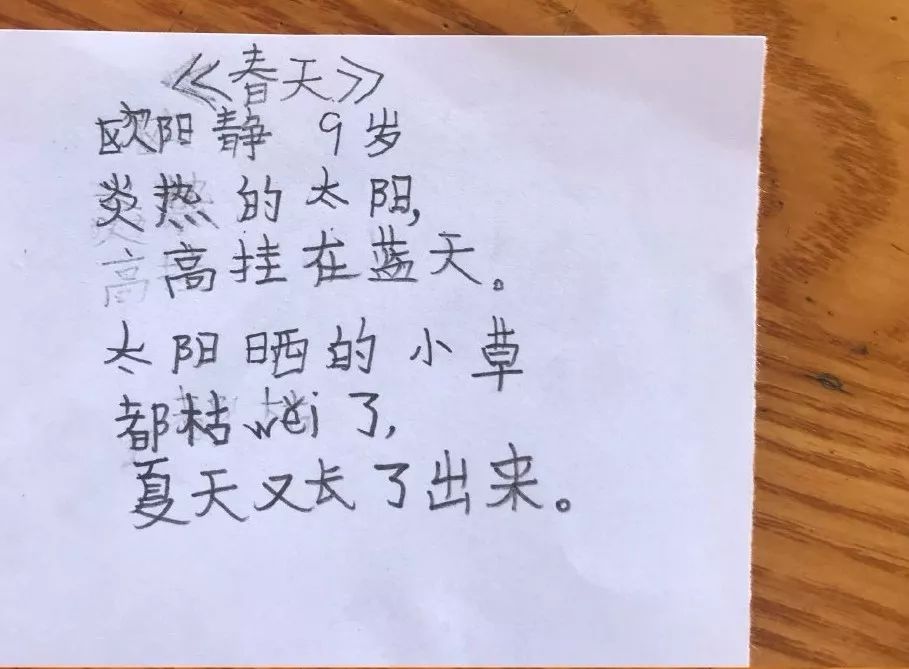 《春天》
欧阳静 9岁
炎热的太阳,
高高挂在蓝天。
太阳晒的小草
都枯wei了,
夏天又长了出来。